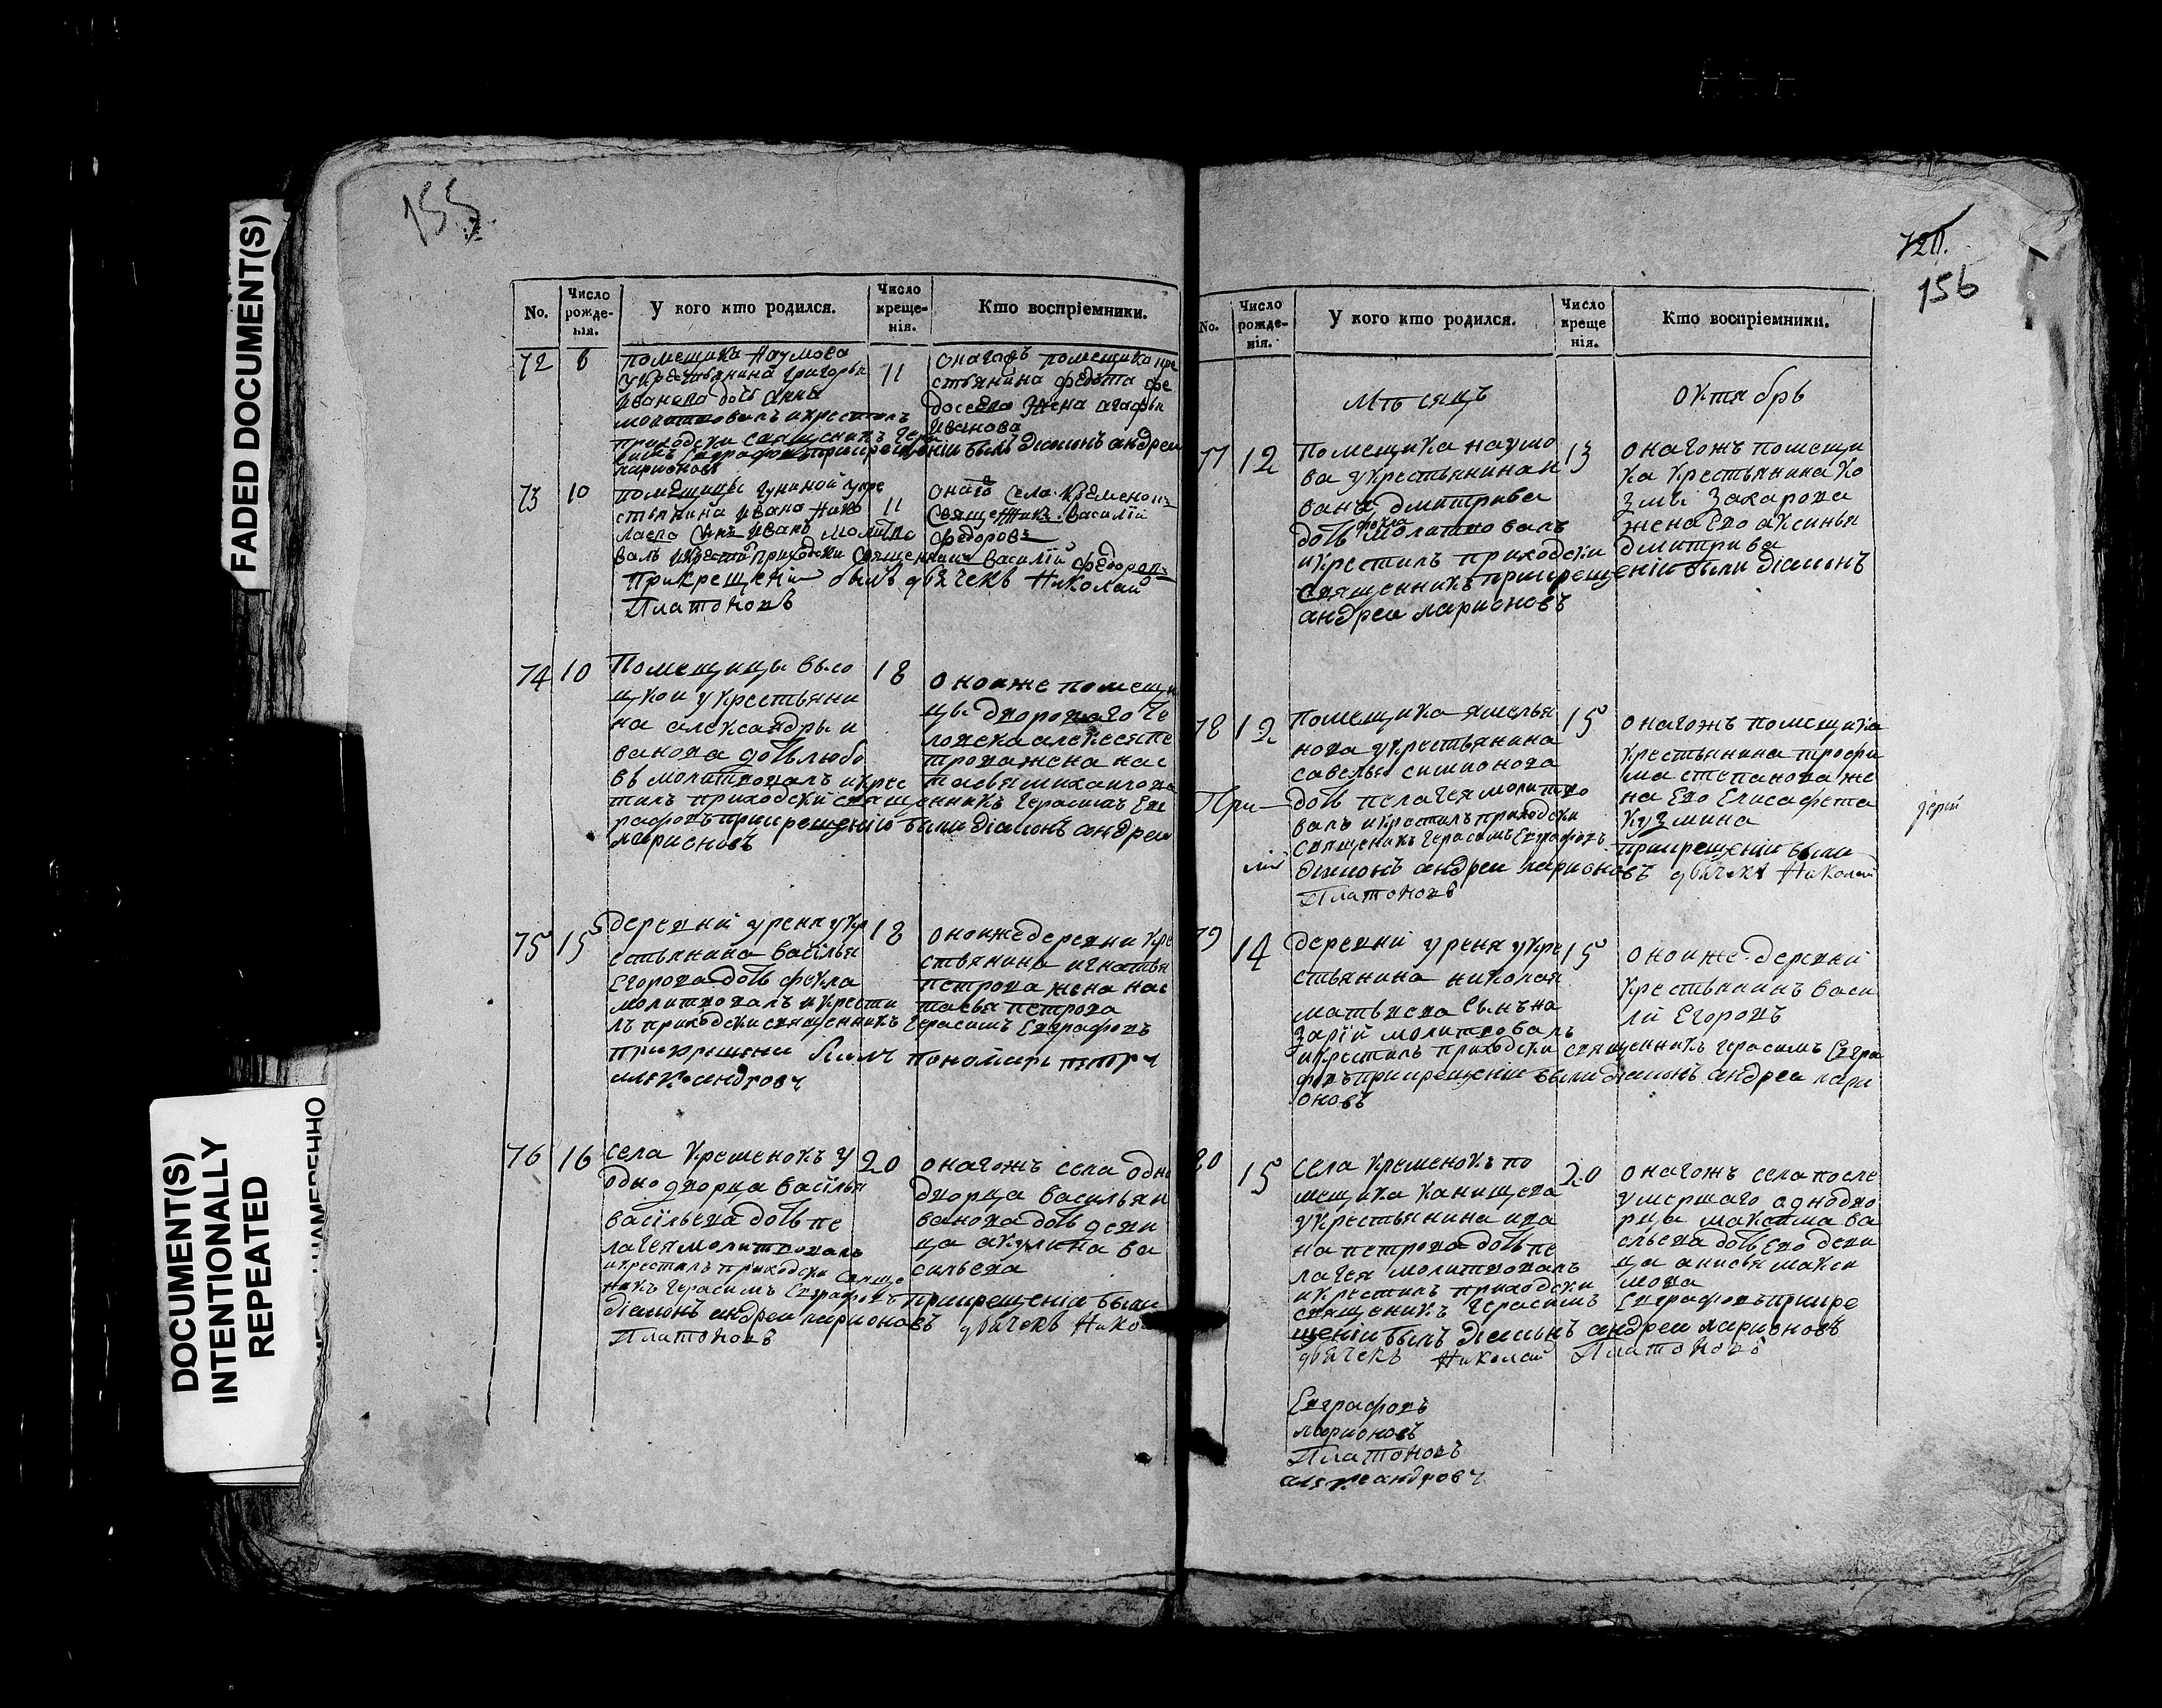 FADED DOCUMENT(S)
DOCUMENT(S)
INTENTIONALLY
REPEATED
155.
No.
Число рожде-нія.
У кого кто родился.
Число креще-нія.
Кто воспріемники.
72
6
помещика Наумова
у крестьянина григорья
иванова дочь анна
молитвовалъ икрестилъ
приходски священникъ Гера
симъ Евграфовъ прикрещеніи былъ діаконъ андреи
ларионовъ
11
онагожъ помещика кре
стьянина федота фе
досеева жена агафья
иванова
73
10
помещицы гуниной укре
стьянина ивана Нико
лаева сынъ иванъ молитво
валъ икрестилъ приходски священникъ василій федоровъ
прикрещеніи былъ дьячекъ Николай
Платоновъ
11
онаго села кременокъ
священникъ василій
федоровъ
74
10
Помещицы высо
цкои укрестьяни
на александры и
ванова дочь любо
вь молитвовалъ икрес
тилъ приходскій священникъ герасимъ Евг
рафовъ прикрещеніи были діаконъ андреи
ларионовъ
18
оноиже помещи
цы дворового че
ловека алексея пе
трова жена нас
тасья михаилова
75
15
деревни урена укр
естьянина васілья
Егорова дочь фекла
молитвовалъ икрести
лъ приходски священникъ герасимъ Евграфовъ
прикрещени былъ пономарь петръ
александровъ
18
оноиже деревни кре
стьянина игнатья
петрова жена нас
тасья петрова
76
16
села Кременокъ у
однодворца васілья
васільева дочь пе
лагея молитвовалъ
икрестилъ приходски свяще
никъ герасимъ Евграфовъ прикрещеніи были
діаконъ андреи ларионовъ дьячекъ Нико
Платоновъ
20
онагожъ села одно
дворца василья и
ванова дочь деви
ца акулина ва
сильева
720.
156
No.
Число рожде-нія.
У кого кто родился.
Число креще нія.
Кто воспріемники.
Мъсяцъ
октябрь
77
12
помещика наумо
ва укрестьянина и
вана дмитриева
фекла
дочь молитвовалъ
икрестилъ приходски
священникъ прикрещеніи были діаконъ
андреи ларионовъ
13
онагожъ помещи
ка крестьянина ко
змы Захарова
жена Ево аксинья
дмитрива
78
12
помещика ямелья
нова укрестьянина
савелья симионова
дочь пелагея молитво
валъ икрестилъ приходски
священикъ герасимъ Евграфовъ прикрещеніи были
діаконъ андреи ларионовъ дьячекъ Николай
Платоновъ
15
онагожъ помещика
крестьянина трофи
ма степанова же
на Ево Елисафета
кузмина
При-
лій
79
14
деревни урена укре
стьянина николая
матвиева сынъ на
зарій молитвовалъ
икрестилъ приходски священникъ герасимъ Евгра
фовъ прикрещеніи были діаконъ андреи лари
оновъ
15
оноиже деревни
крестьянинъ васи
ли Егоровъ
80
15
села кременокъ по
мещика канищева
укрестьянина ива
на петрова дочь пе
лагея молитвовалъ
икрестилъ приходски
священикъ герасимъ Евграфовъ прикре
щеніи былъ діаконъ андреи ларионовъ
дьячекъ Николай Платоновъ
20
онагожъ села после
умершаго однодво
рца максима ва
сильева дочь Ево деви
ца анисья макси
мова
Евграфовъ
ларионовъ
Платоновъ
александровъ